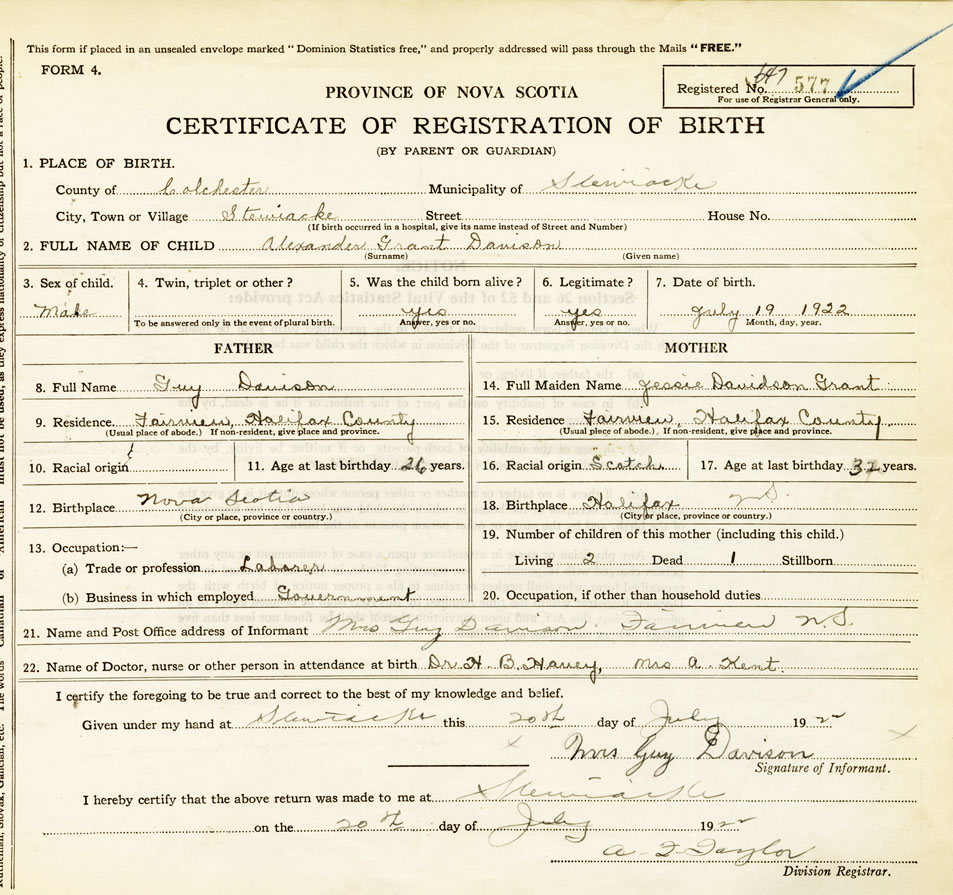 This form if placed in an unsealed envelope marked "Dominion Statistics free," and properly addressed will pass through the Mails "FREE."
FORM 4.
547
Registered No. 577
For use of Registrar General only.
PROVINCE OF NOVA SCOTIA
CERTIFICATE OF REGISTRATION OF BIRTH
(BY PARENT OR GUARDIAN)
1. PLACE OF BIRTH.
County of Colchester Municipality of Stewiacke
City, Town or Village Stewiacke Street House No.
(If birth occurred in a hospital, give its name instead of Street and Number)
2. FULL NAME OF CHILD Alexander Grant Davison
(Surname) (Given name)
3. Sex of child. 4. Twin, triplet or other? 5. Was the child born alive? 6. Legitimate? 7. Date of birth.
Male yes yes July 19 1922
To be answered only in the event of plural birth. Answer, yes or no. Answer, yes or no. Month, day, year.
FATHER
8. Full Name Guy Davison
9. Residence Fairview, Halifax County
(Usual place of abode.) If non-resident, give place and province.
10. Racial origin 11. Age at last birthday 26 years.
12. Birthplace Nova Scotia
(City or place, province or country.)
13. Occupation:—
(a) Trade or profession Laborer
(b) Business in which employed Government
MOTHER
14. Full Maiden Name Jessie Davidson Grant
15. Residence Fairview, Halifax County
(Usual place of abode.) If non-resident, give place and province.
16. Racial origin Scotch 17. Age at last birthday 32 years.
18. Birthplace Halifax N.S.
(City or place, province or country.)
19. Number of children of this mother (including this child.)
Living 2 Dead 1 Stillborn
20. Occupation, if other than household duties
21. Name and Post Office address of Informant Mrs Guy Davison. Fairview N.S.
22. Name of Doctor, nurse or other person in attendance at birth Dr. H. B. Havey, Mrs A. Kent.
I certify the foregoing to be true and correct to the best of my knowledge and belief.
Given under my hand at Stewiacke this 20th day of July 1922
Mrs Guy Davison
Signature of Informant.
I hereby certify that the above return was made to me at Stewiacke
on the 20th day of July 1922
A. F. Taylor
Division Registrar.